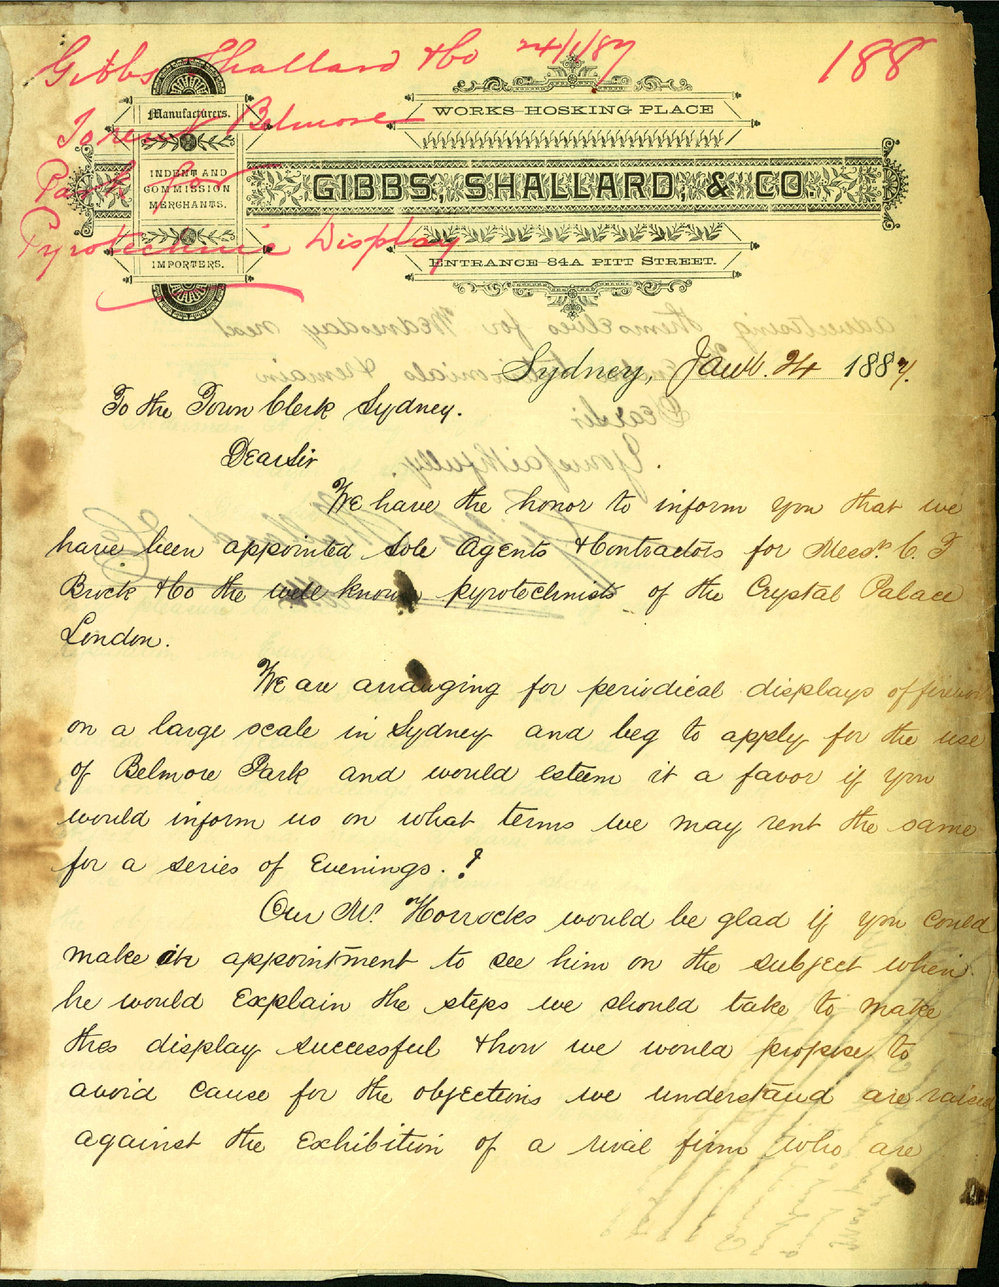 Gibbs Shallard & Co 24/1/87 188
To rent Belmore
Park for
Pyrotechnic Display
Manufacturers.
INDENT AND
COMMISSION
MERCHANTS.
IMPORTERS.
WORKS-HOSKING PLACE
GIBBS, SHALLARD, & CO.
ENTRANCE 84A PITT STREET.
Sydney, 24 1887.
To the Town Clerk Sydney.
Dear Sir
We have the honor to inform you that we
have been appointed Sole Agents & Contractors for Messrs C. T
Brock & Co the well known pyrotechnists of the Crystal Palace
London.
We are arranging for periodical displays of firewor
on a large scale in Sydney and beg to apply for the use
of Belmore Park and would esteem it a favor if you
would inform us on what terms we may rent the same
for a series of Evenings.?
Our Mr. Horrocks would be glad if you could
make an appointment to see him on the subject when
he would Explain the steps we should take to make
this display successful & how we would propose to
avoid cause for the objections we understand are raised
against the Exhibition of a rival firm who are